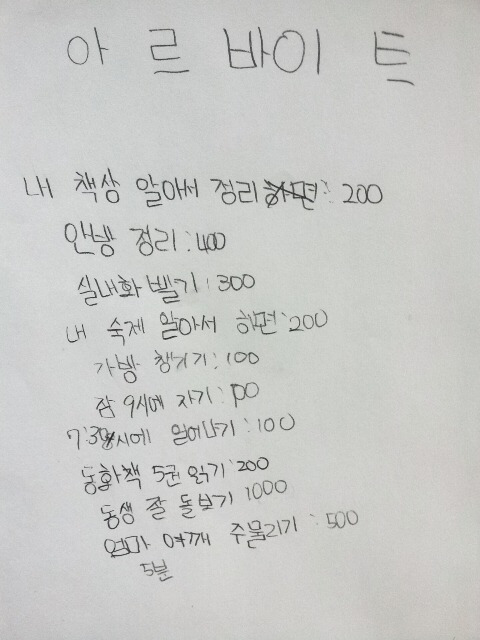 아르바이트
내 책상 알아서 정리 : 200
안방 정리 : 400
실내화 빨기 : 300
내 숙제 알아서 하면 : 200
가방 챙기기 : 100
잠 9시에 자기 :
7:30시에 일어나기 : 100
동화책 5권 읽기 : 200
동생 잘 돌보기 1000
엄마 어깨 주물리기 : 500
5분